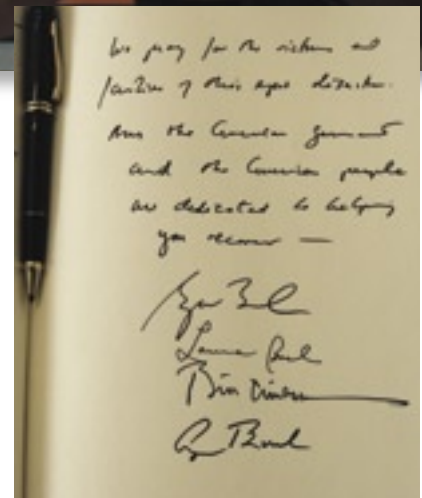 We pray for the victims and
families of this great disaster.
And the American Government
and the American people
are dedicated to helping
you recover —
Laura Bush
Bill Clinton
G Bush